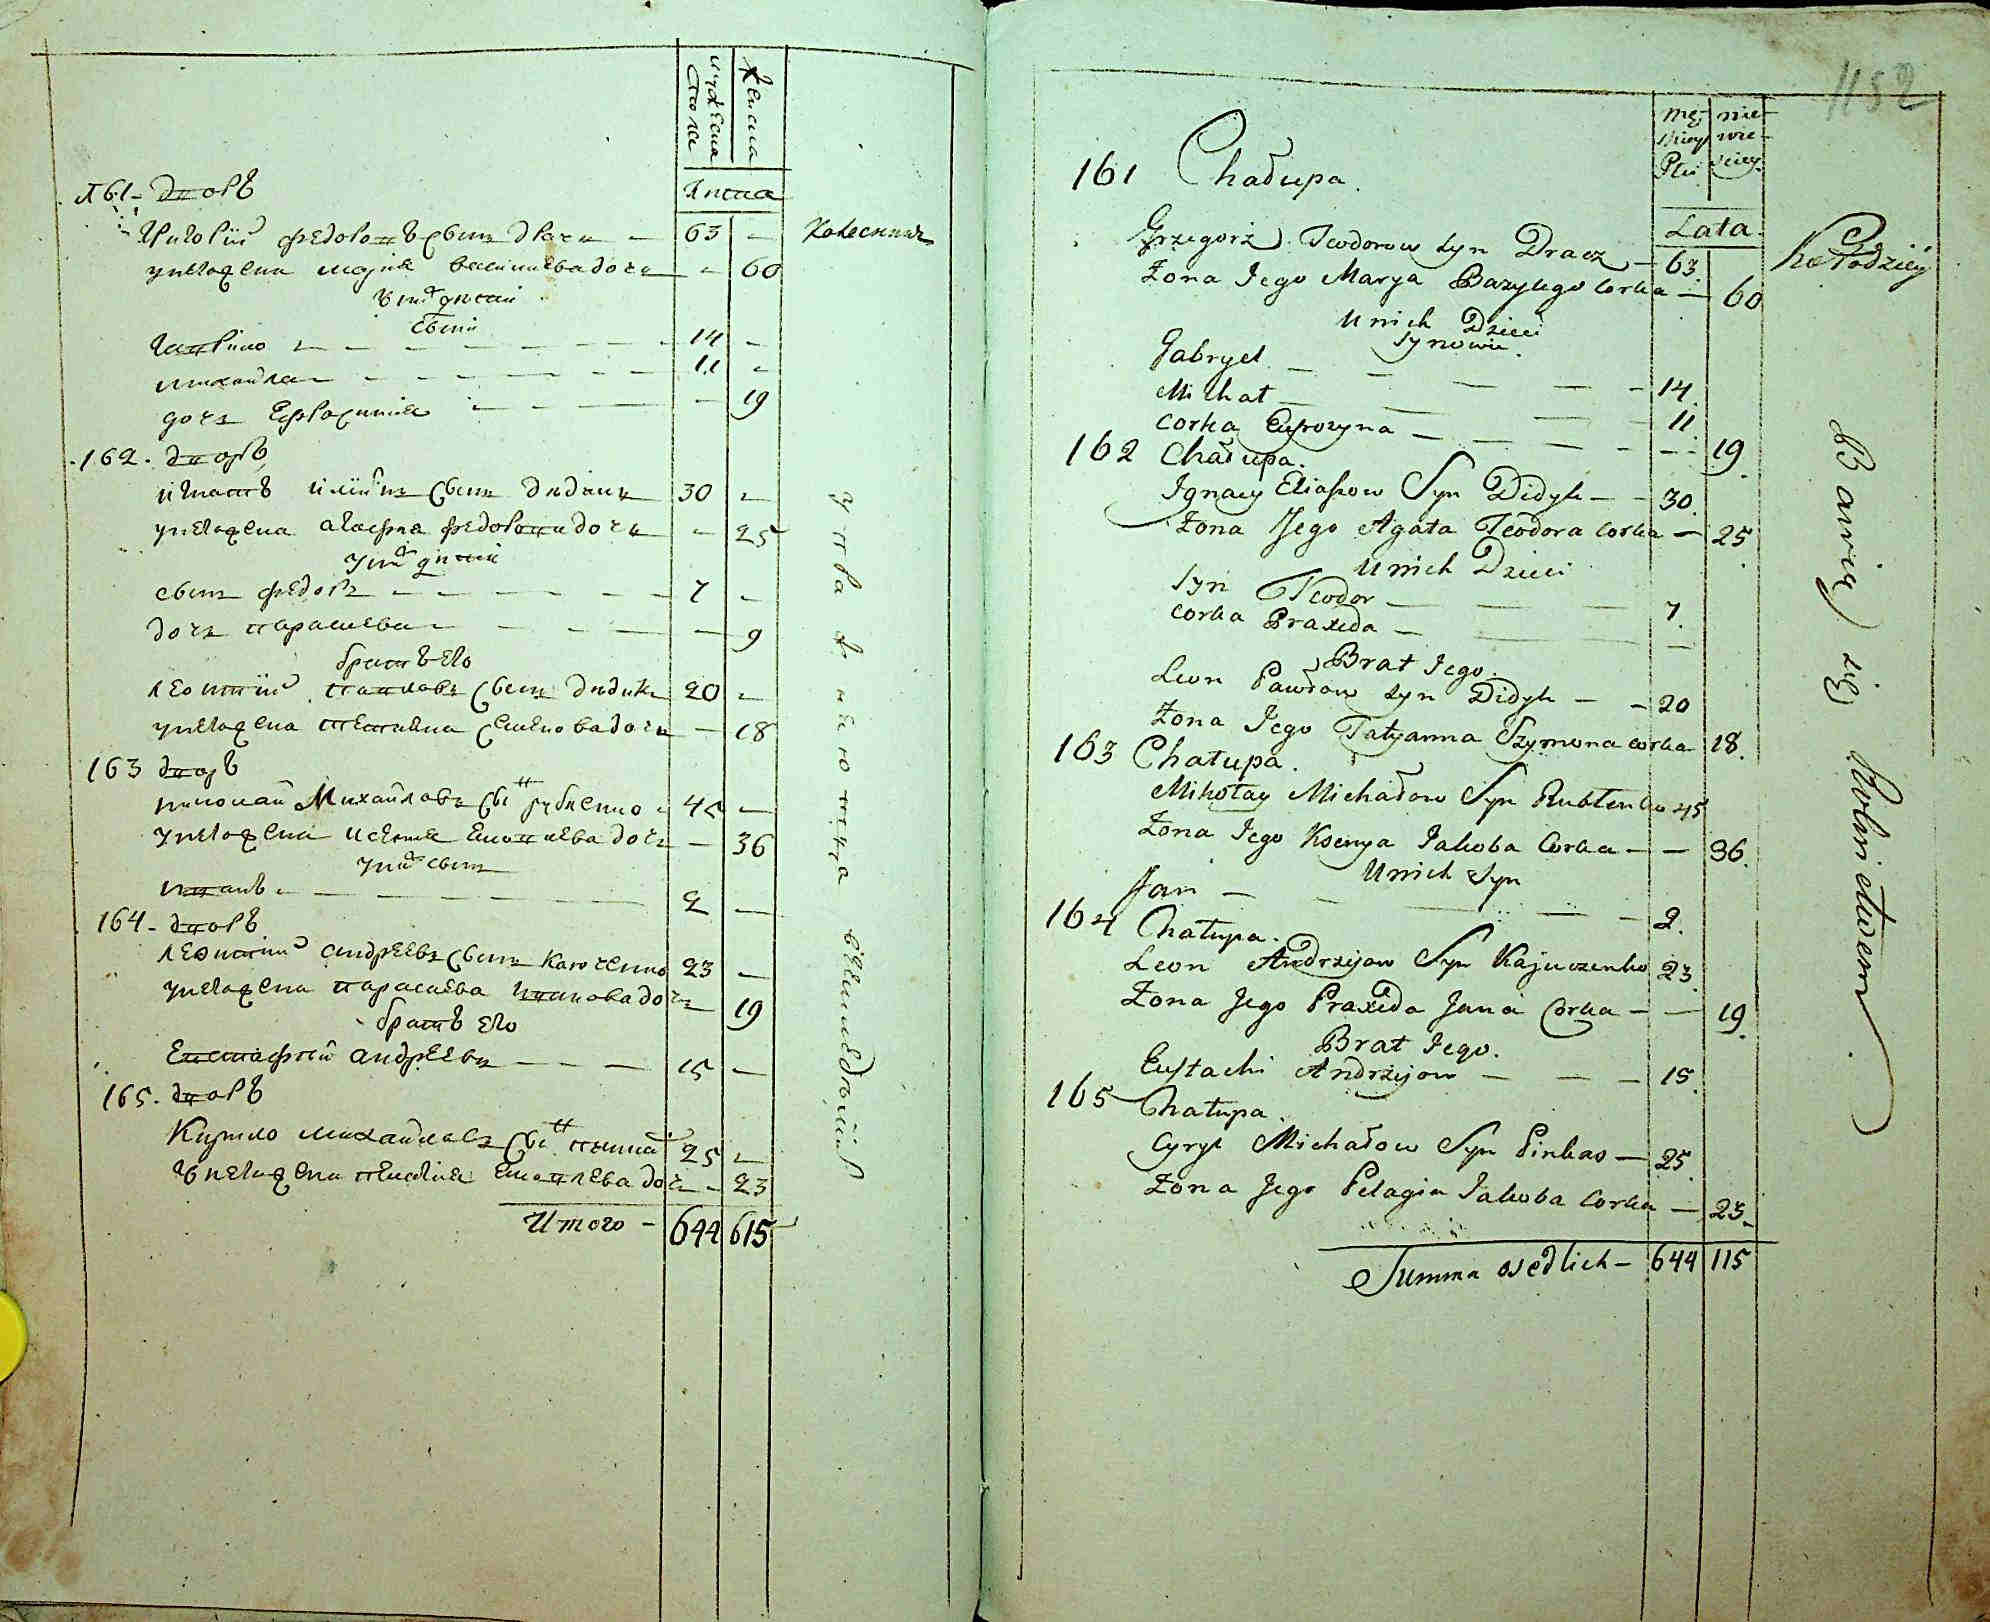 мужеска пола
женска
лета
161 дворъ
Григорій Федоровъ сынъ драчь — 63 —
колесникъ
у него жена марія василиева дочь — — 60
у нихъ дети
сыни
гаврило — 14 —
михайла — 11 —
дочь Ефросинія — — 19
162. дворъ
игнатъ иліинъ сынъ дидикъ 30 —
у него жена агафия федорова дочь — 25
у нихъ дети
сынъ федоръ — 7 —
дочь парасиева — — 9
братъ его
леонтій павловъ сынъ дидикъ 20 —
у него жена татияна семенова дочь — 18
163 дворъ
николай Михайловъ сынъ рубленко 45 —
у него жена ксения яковлева дочь — 36
у нихъ сынъ
иванъ — 2 —
164. дворъ
леонтій андреевъ сынъ каюченко 23 —
у него жена парасиева иванова дочь — 19
братъ его
Евстафий андреевъ — 15 —
165. дворъ
Кирило михайловъ сынъ пинка 25 —
у него жена пелагия яковлева дочь — 23
Итого — 644 615
1152
męzkiey Płci
niewieściey
Lata.
161 Chałupa.
Grzegorz Teodorow Syn Dracz — 63
Kołodziey
Zona Jego Marya Bazylego Corka — 60
U nich Dzieci
Synowie.
Gabryel — 14.
Michał — 11.
Corka Eufrozyna — 19.
162 Chałupa.
Ignacy Eliaszow Syn Didyk — 30.
Zona Jego Agata Teodora Corka — 25.
U nich Dzieci
Syn Teodor — 7.
Corka Praxeda —
Brat Jego.
Leon Pawłow Syn Didyk — 20
Zona Jego Tatyanna Szymona Corka 18.
163 Chałupa.
Mikołay Michałow Syn Rublenko 45
Zona Jego Ksenya Jakoba Corka — 36.
U nich Syn
Jan — 2.
164 Chałupa.
Leon Andrzejow Syn Kajuczenko 23.
Zona Jego Praxeda Jana Corka — 19.
Brat Jego.
Eustachi Andrzejow — 15.
165 Chałupa.
Cyryl Michałow Syn Pinkas — 25.
Zona Jego Pelagia Jakoba Corka — 23.
Summa osedlich — 644 115
Bawią się Rolnictwem.